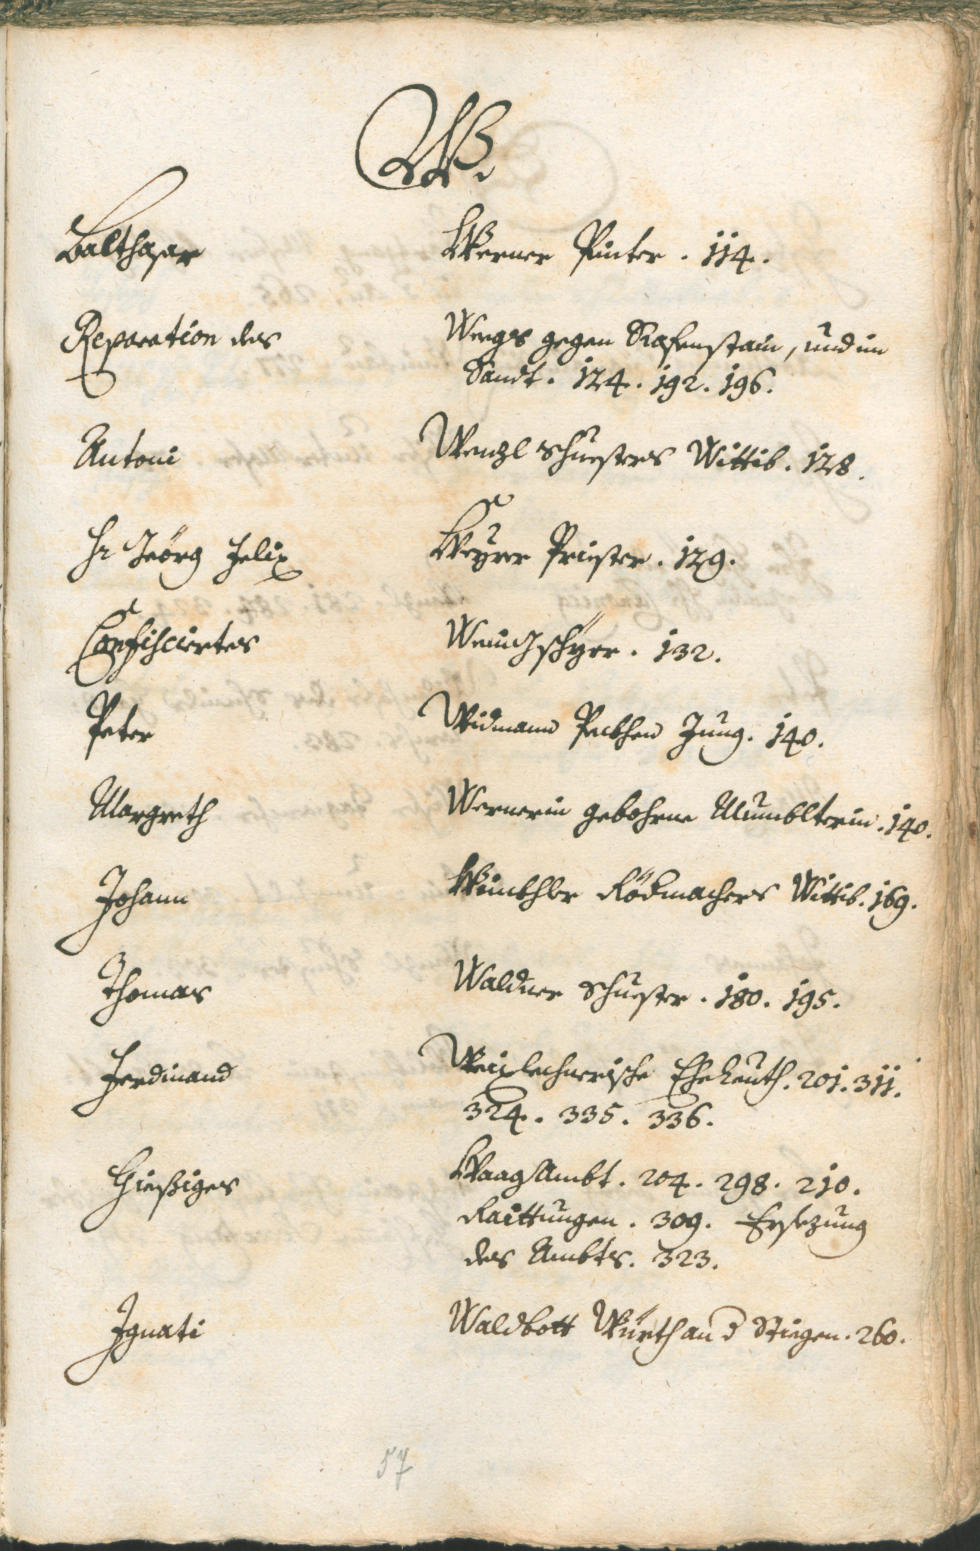 W.
Balthasar Werner Pinter. 114.
Reparation des Weegs gegen Rafenstain, und im
Sandt. 124. 192. 196.
Antoni Wenzl Schuesters Wittib. 128.
Hr Geörg Felix Weyrer Priester. 129.
Confiscirtes 132.
Peter Widmann Pekhen Jung. 140.
Margreth Wernerin gebohrne 140.
Johann Rödmachers Wittib. 169.
Thomas Waldner Schuester. 180. 195.
Ferdinand Weixlechnerische Eheleuth. 201. 311.
324. 335. 336.
Hießiges WaagAmbt. 204. 298. 210.
Raittungen. 309. Ersezung
des Ambts. 323.
Ignati Waldbott Würth an d Stiegen. 260.
57